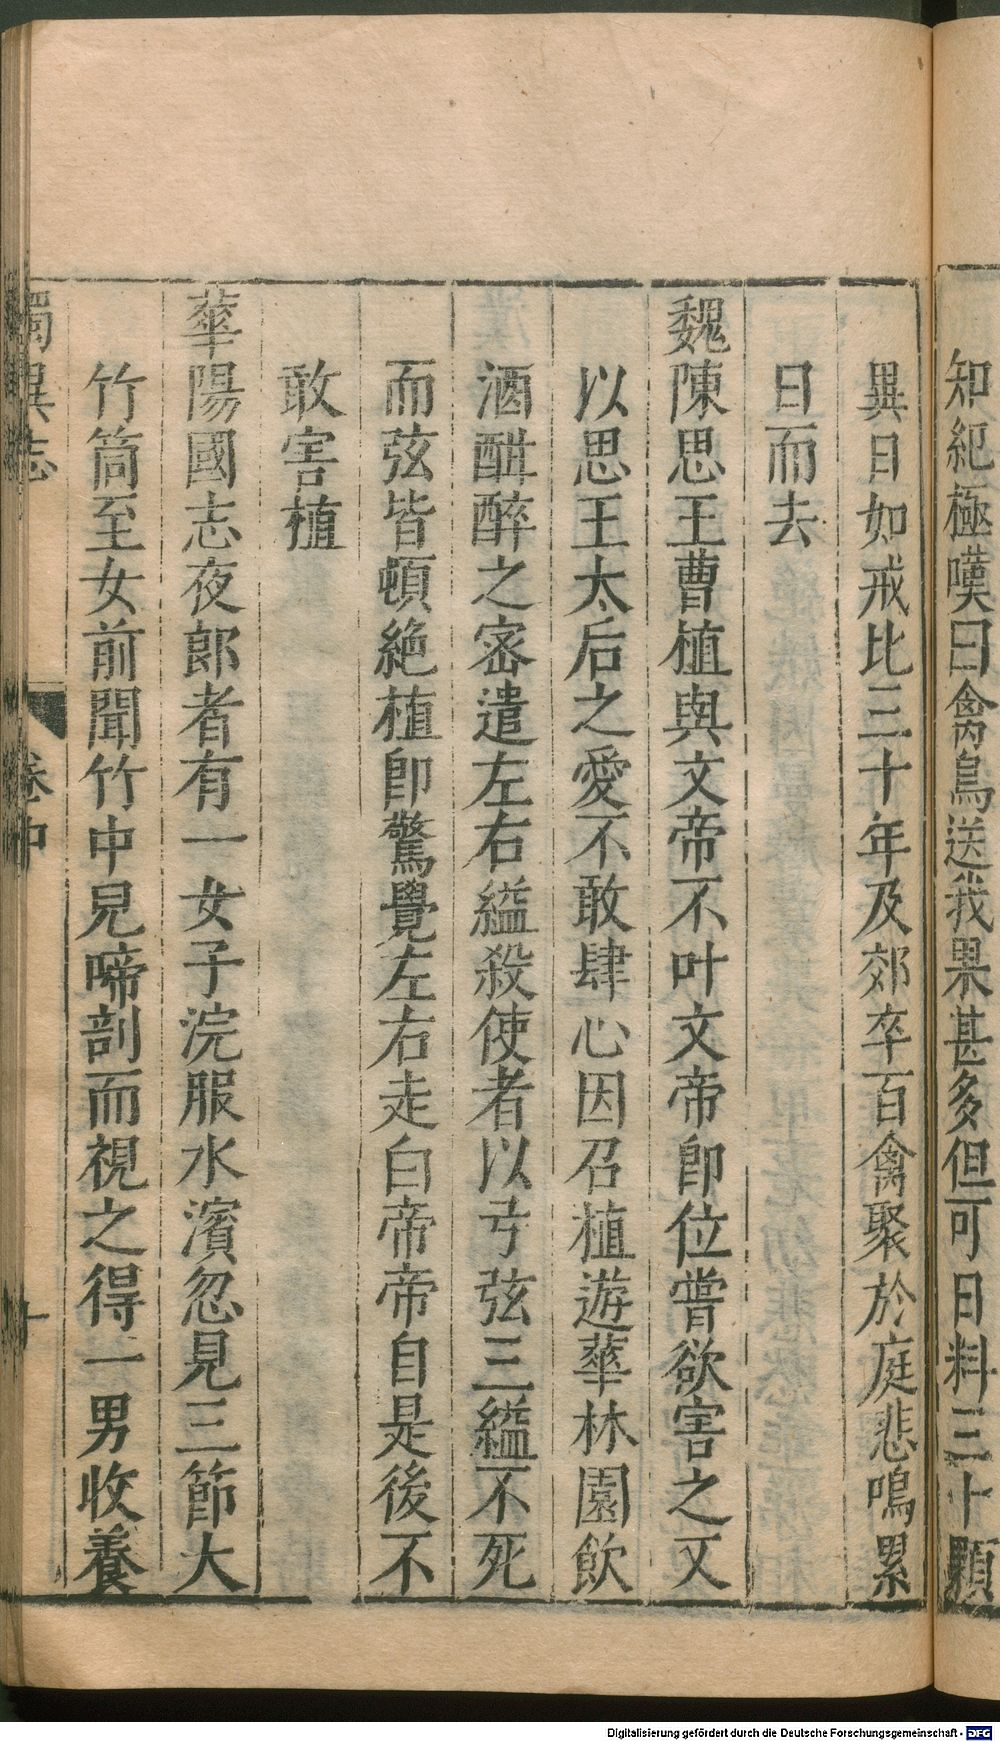 知紀極嘆曰禽鳥送我果甚多但可日料三十顆
異日如戒比三十年及郊卒百禽聚於庭悲鳴累
日而去
魏陳思王曹植與文帝不叶文帝卽位嘗欲害之又
以思王太后之愛不敢肆心因召植遊華林園飲
酒酣醉之密遣左右縊殺使者以弓弦三縊不死
而弦皆頓絶植卽驚覺左右走白帝帝自是後不
敢害植
華陽國志夜郎者有一女子浣服水濱忽見三節大
竹筒至女前聞竹中兒啼剖而視之得一男收養
獨異志
卷中
十
Digitalisierung gefördert durch die Deutsche Forschungsgemeinschaft - DFG